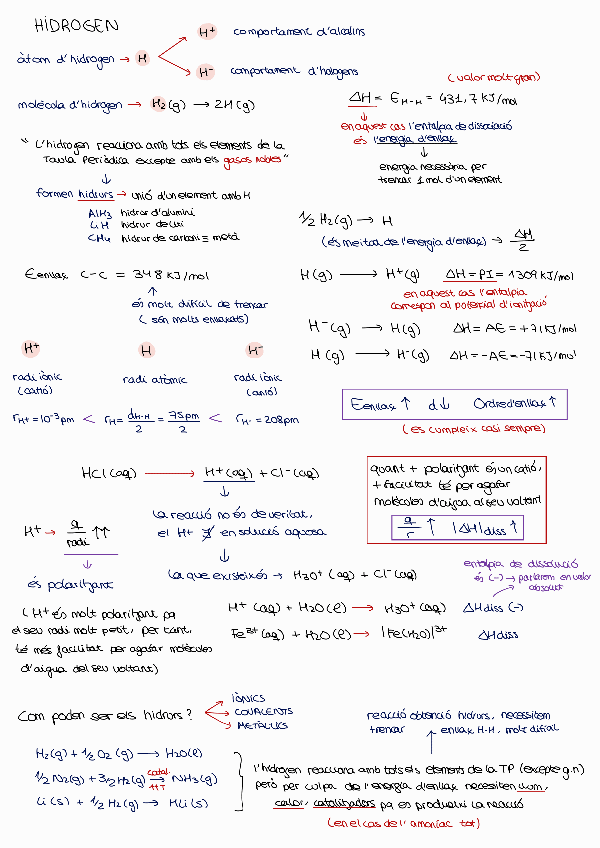 HIDROGEN
H⁺ comportament d'alcalins
àtom d'hidrogen → H
H⁻ comportament d'halogens
(valor molt gran)
molècula d'hidrogen → H₂(g) → 2H(g)
ΔH = E H-H = 431,7 KJ/mol
en aquest cas l'entalpia de dissociació
és l'energia d'enllaç
energia necessària per
trencar 1 mol d'un element
"L'hidrogen reacciona amb tots els elements de la
Taula Periòdica excepte amb els gasos nobles"
formen hidrurs → unió d'un element amb H
AlH₃ hidrur d'alumini
LiH hidrur de liti
CH₄ hidrur de carboni ≡ metà
1/2 H₂(g) → H
(és meitat de l'energia d'enllaç) → ΔH/2
Eenllaç C-C = 348 KJ/mol
és molt difícil de trencar
(són molts enllaçats)
H(g) → H⁺(g) ΔH = PI = 1309 KJ/mol
en aquest cas l'entalpia
correspon al potencial d'ionització
H⁻(g) → H(g) ΔH = AE = +71 KJ/mol
H(g) → H⁻(g) ΔH = -AE = -71 KJ/mol
H⁺ H H⁻
radi iònic radi atòmic radi iònic
(catió) (anió)
rH+ = 10⁻³pm < rH = dH-H/2 = 75pm/2 < rH- = 208pm
Eenllaç ↑ d↓ Ordre d'enllaç ↑
(es compleix casi sempre)
HCl(aq) → H⁺(aq) + Cl⁻(aq)
quant + polaritzant és un catió,
+ facilitat té per agafar
molècules d'aigua al seu voltant
q/r ↑ |ΔH|diss ↑
La reacció no és de veritat,
el H⁺ ∄ en solució aquosa
H⁺ → q/radi ↑↑
és polaritzant
La que existeix és → H₃O⁺(aq) + Cl⁻(aq)
entalpia de dissolució
és (-) → parlarem en valor
absolut
(H⁺ és molt polaritzant pq
el seu radi molt petit, per tant,
té més facilitat per agafar molècules
d'aigua del seu voltant)
H⁺(aq) + H₂O(l) → H₃O⁺(aq) ΔHdiss (-)
Fe³⁺(aq) + H₂O(l) → |Fe(H₂O)|³⁺ ΔHdiss
Com poden ser els hidrurs?
IÒNICS
COVALENTS
METÀL·LICS
reacció obtenció hidrurs, necessitem
trencar enllaç H-H, molt difícil
H₂(g) + 1/2 O₂(g) → H₂O(l)
1/2 N₂(g) + 3/2 H₂(g) catal. ↑↑T → NH₃(g)
Li(s) + 1/2 H₂(g) → HLi(s)
l'hidrogen reacciona amb tots els elements de la TP (excepte g.n)
però per culpa de l'energia d'enllaç necessiten llum,
calor, catalitzadors pq es produeixi la reacció
(en el cas de l'amoníac tot)